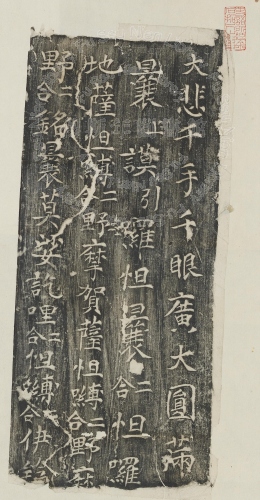 大悲千手千眼廣大圓滿
曩上謨引羅怛曩二合怛囉
地薩怛嚩二合野摩賀薩怛嚩二合野
野二合銘曩莫娑訖哩二合怛嚩二合伊